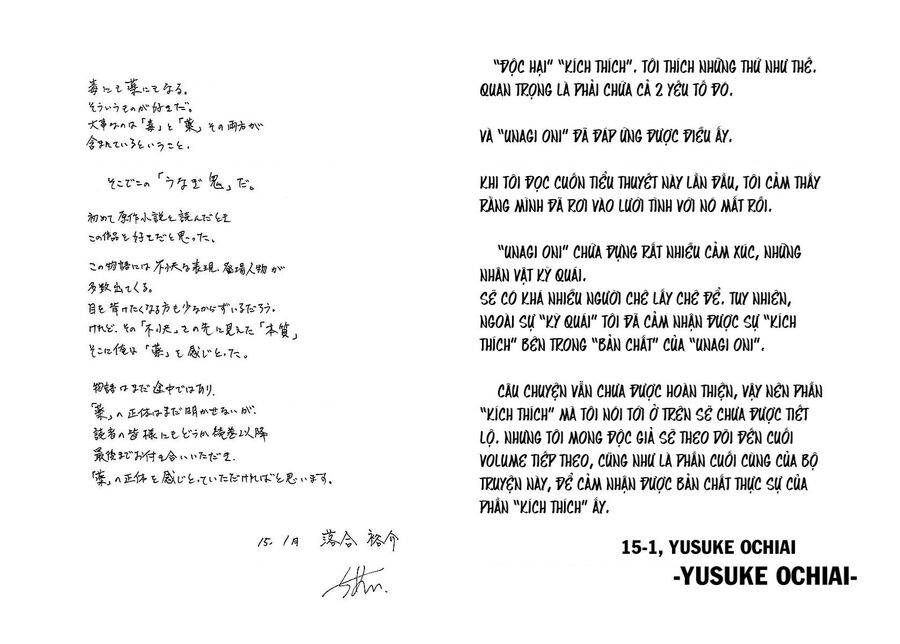 毒にも薬にもなる。
そういうものが好きだ。
大事なのは「毒」と「薬」その両方が
含まれているということ。
そこでこの「うなぎ鬼」だ。
初めて原作小説を読んだとき
この作品を好きだと思った。
この物語には不快な表現、登場人物が
多数出てくる。
目を背けたくなる方も少なからずいるだろう。
けれど、その「不快」の先に見えた「本質」
そこに俺は「薬」を感じとった。
物語はまだ途中ではあり、
「薬」の正体はまだ明かせないが、
読者の皆様にもどうか続巻以降
最後までお付き合いいただき、
「薬」の正体を感じとっていただければと思います。
15. 1月 落合 裕介
“ĐỘC HẠI” “KÍCH THÍCH”. TÔI THÍCH NHỮNG THỨ NHƯ THẾ.
QUAN TRỌNG LÀ PHẢI CHỨA CẢ 2 YẾU TỐ ĐÓ.
VÀ “UNAGI ONI” ĐÃ ĐÁP ỨNG ĐƯỢC ĐIỀU ẤY.
KHI TÔI ĐỌC CUỐN TIỂU THUYẾT NÀY LẦN ĐẦU, TÔI CẢM THẤY
RẰNG MÌNH ĐÃ RƠI VÀO LƯỚI TÌNH VỚI NÓ MẤT RỒI.
“UNAGI ONI” CHỨA ĐỰNG RẤT NHIỀU CẢM XÚC, NHỮNG
NHÂN VẬT KỲ QUÁI.
SẼ CÓ KHÁ NHIỀU NGƯỜI CHÊ LẤY CHÊ ĐỂ. TUY NHIÊN,
NGOÀI SỰ “KỲ QUÁI” TÔI ĐÃ CẢM NHẬN ĐƯỢC SỰ “KÍCH
THÍCH” BÊN TRONG “BẢN CHẤT” CỦA “UNAGI ONI”.
CÂU CHUYỆN VẪN CHƯA ĐƯỢC HOÀN THIỆN, VẬY NÊN PHẦN
“KÍCH THÍCH” MÀ TÔI NÓI TỚI Ở TRÊN SẼ CHƯA ĐƯỢC TIẾT
LỘ. NHƯNG TÔI MONG ĐỘC GIẢ SẼ THEO DÕI ĐẾN CUỐI
VOLUME TIẾP THEO, CŨNG NHƯ LÀ PHẦN CUỐI CÙNG CỦA BỘ
TRUYỆN NÀY, ĐỂ CẢM NHẬN ĐƯỢC BẢN CHẤT THỰC SỰ CỦA
PHẦN “KÍCH THÍCH” ẤY.
15-1, YUSUKE OCHIAI
-YUSUKE OCHIAI-